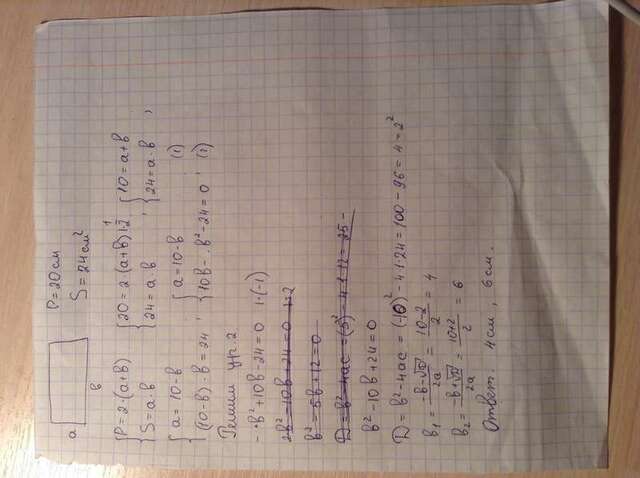 a
в
P = 20 см
S = 24 см²
{ P = 2·(a+в) { 20 = 2·(a+в) |:2 { 10 = a+в
{ S = a·в { 24 = a·в , { 24 = a·в ,
{ a = 10-в { a = 10-в (1)
{ (10-в)·в = 24 , { 10в - в² - 24 = 0 , (2)
Решим ур. 2
- в² + 10в - 24 = 0 |·(-1)
2в² - 10в + 24 = 0 |:2
в² - 5в + 12 = 0
D = в² - 4ac = (5)² - 4·1·12 = 25 -
в² - 10в + 24 = 0
D = в² - 4ac = (-10)² - 4·1·24 = 100 - 96 = 4 = 2²
в₁ = (-в-√D)/2a = (10-2)/2 = 4
в₂ = (-в+√D)/2a = (10+2)/2 = 6
Ответ. 4 см, 6 см.